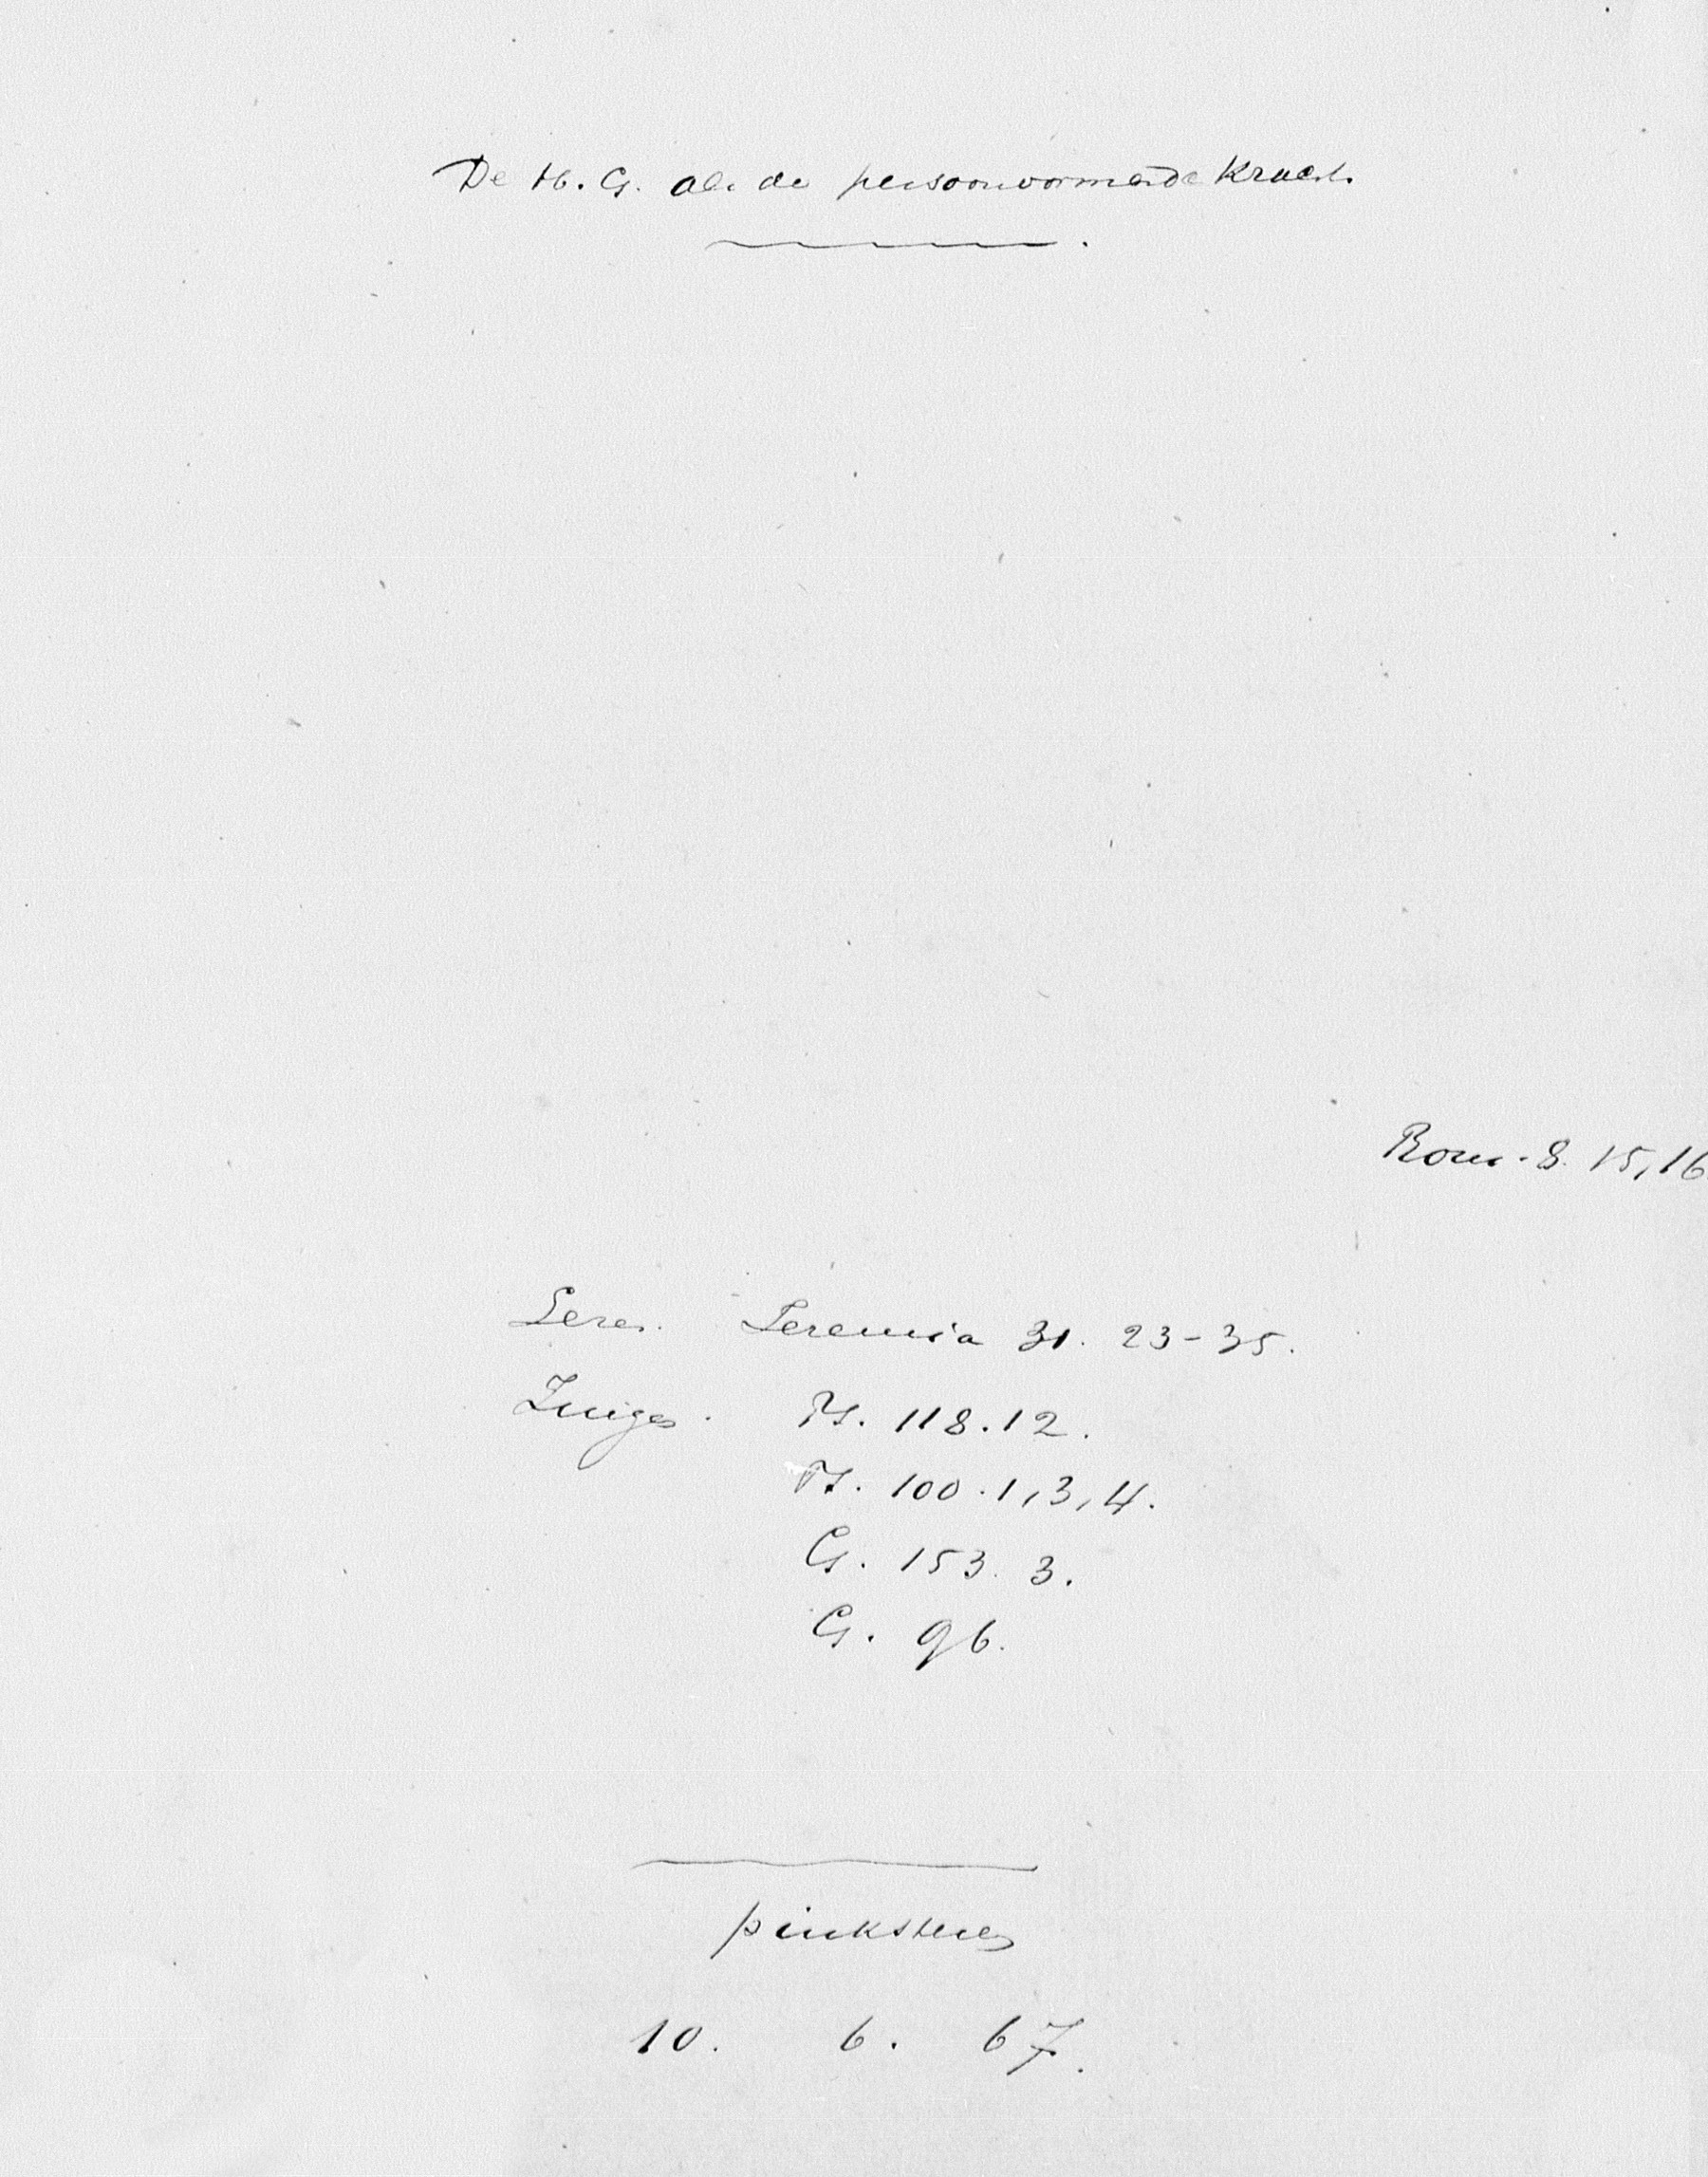 De H. G. als de persoonvormende Kracht.
Rom. 8. 15, 16
Lezen. Jeremia 31. 23-35.
Zingen. Ps. 118. 12.
Ps. 100. 1, 3, 4.
G. 153. 3.
G. 96.
pinksteren
10. 6. 67.